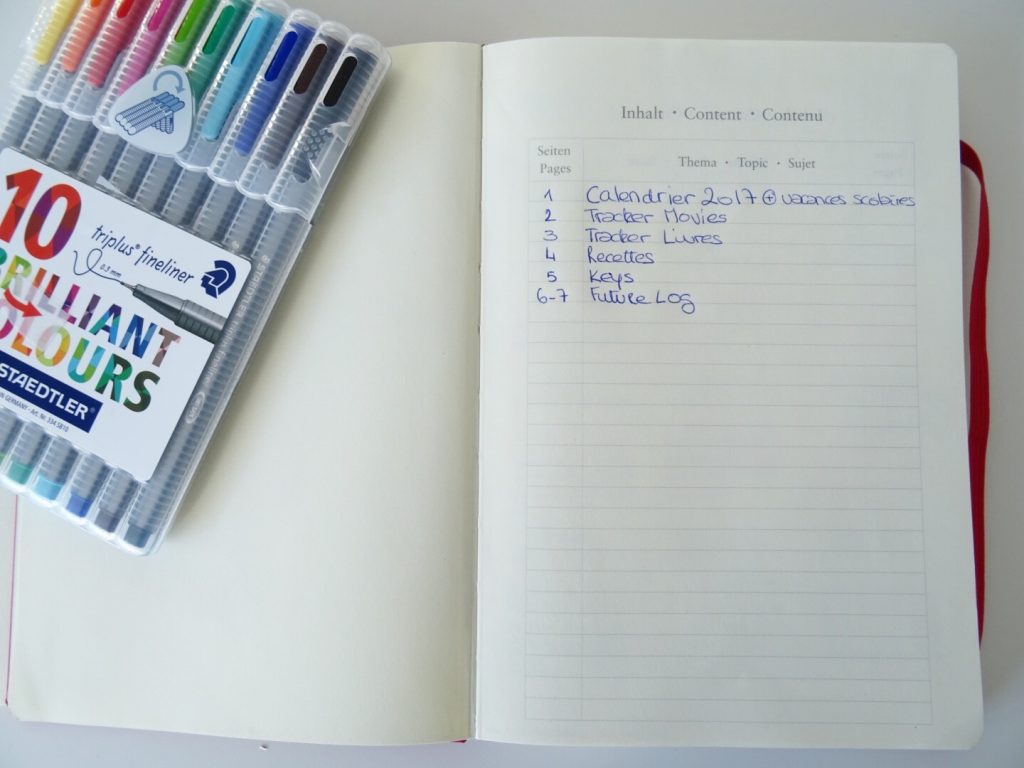 10
BRILLIANT
COLOURS
triplus® fineliner
0.3 mm
STAEDTLER®
IN GERMANY - Art. Nr. 334 SB10
Inhalt · Content · Contenu
Seiten
Pages
Thema · Topic · Sujet
1 Calendrier 2017 ⊕ vacances scolaires
2 Tracker Movies
3 Tracker Livres
4 Recettes
5 Keys
6-7 Future Log